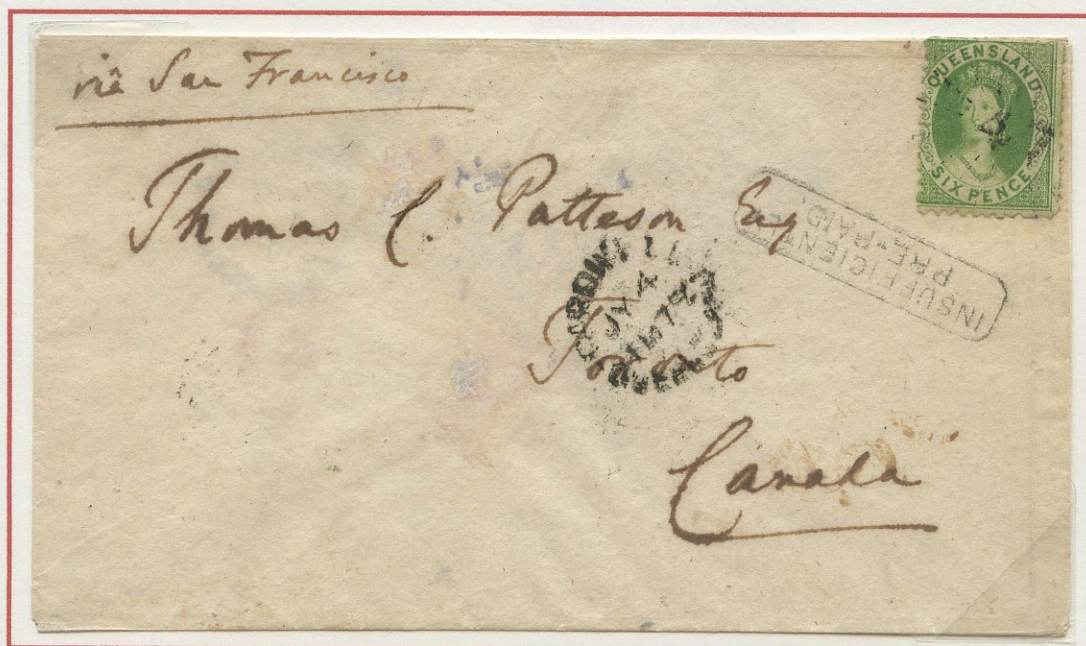 viâ San Francisco
QUEENSLAND
SIX PENCE
Thomas C. Patteson Esq
INSUFFICIENTLY
PRE-PAID.
CARDWELL
JY 4
Toronto
Canada